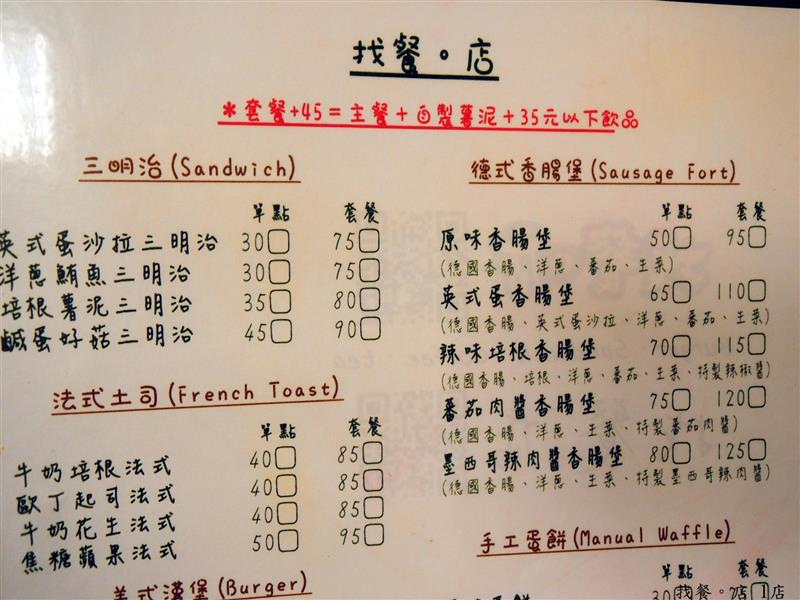 找餐。店
*套餐+45=主餐+自製薯泥+35元以下飲品
三明治(Sandwich)
單點 套餐
英式蛋沙拉三明治 30 75
洋蔥鮪魚三明治 30 75
培根薯泥三明治 35 80
鹹蛋好菇三明治 45 90
法式土司(French Toast)
單點 套餐
牛奶培根法式 40 85
歐丁起司法式 40 85
牛奶花生法式 40 85
焦糖蘋果法式 50 95
美式漢堡(Burger)
德式香腸堡(Sausage Fort)
單點 套餐
原味香腸堡 50 95
(德國香腸、洋蔥、番茄、生菜)
英式蛋香腸堡 65 110
(德國香腸、英式蛋沙拉、洋蔥、番茄、生菜)
辣味培根香腸堡 70 115
(德國香腸、培根、洋蔥、番茄、生菜、特製辣椒醬)
番茄肉醬香腸堡 75 120
(德國香腸、洋蔥、生菜、特製番茄肉醬)
墨西哥辣肉醬香腸堡 80 125
(德國香腸、洋蔥、生菜、特製墨西哥辣肉醬)
手工蛋餅(Manual Waffle)
單點 套餐
30
找餐。店 1店